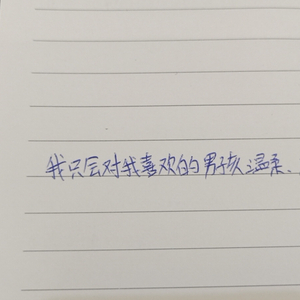 我只会对我喜欢的男孩温柔、